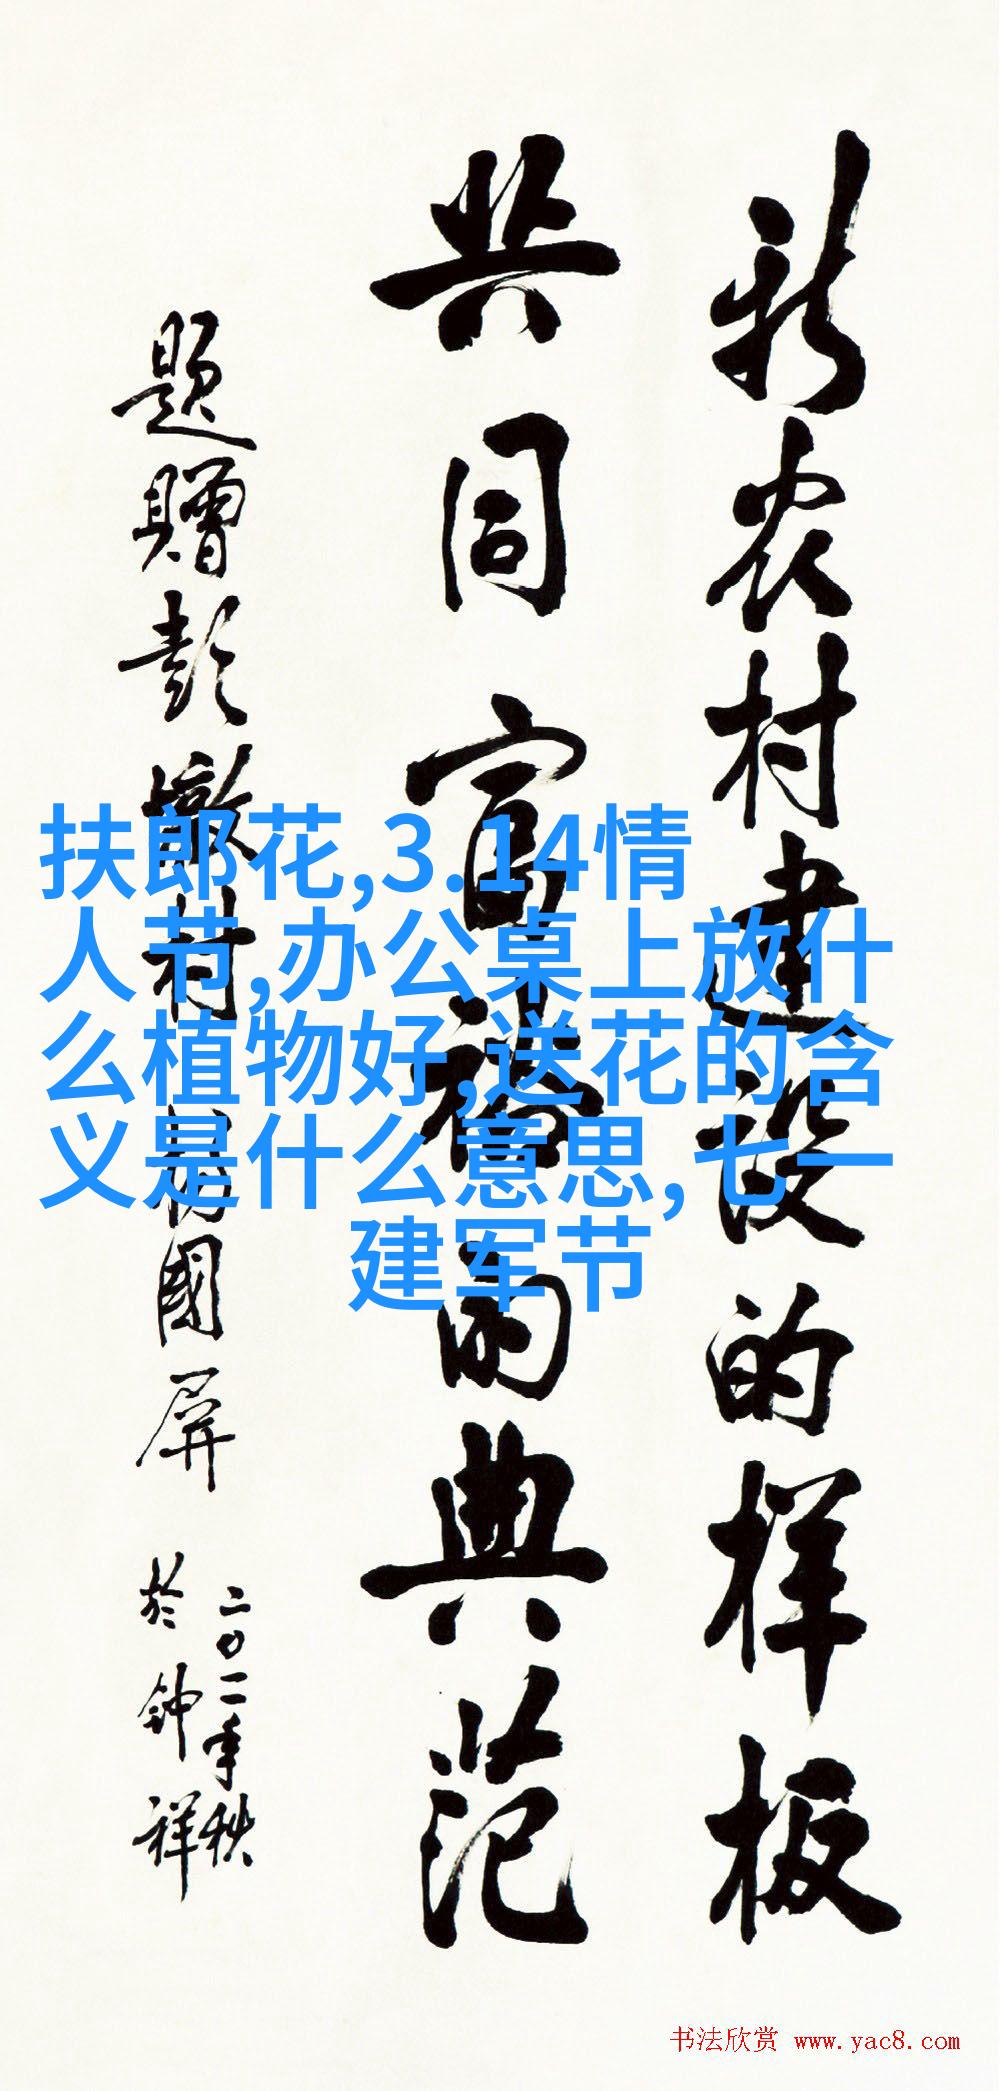 新农村建设的样板
共同富裕的典范
题赠彭墩村杨国屏
二〇一一年秋
於钟祥
扶郎花,3.14情
人节,办公桌上放什
么植物好,送花的含
义是什么意思,七一
建军节
书法欣赏 www.yac8.com